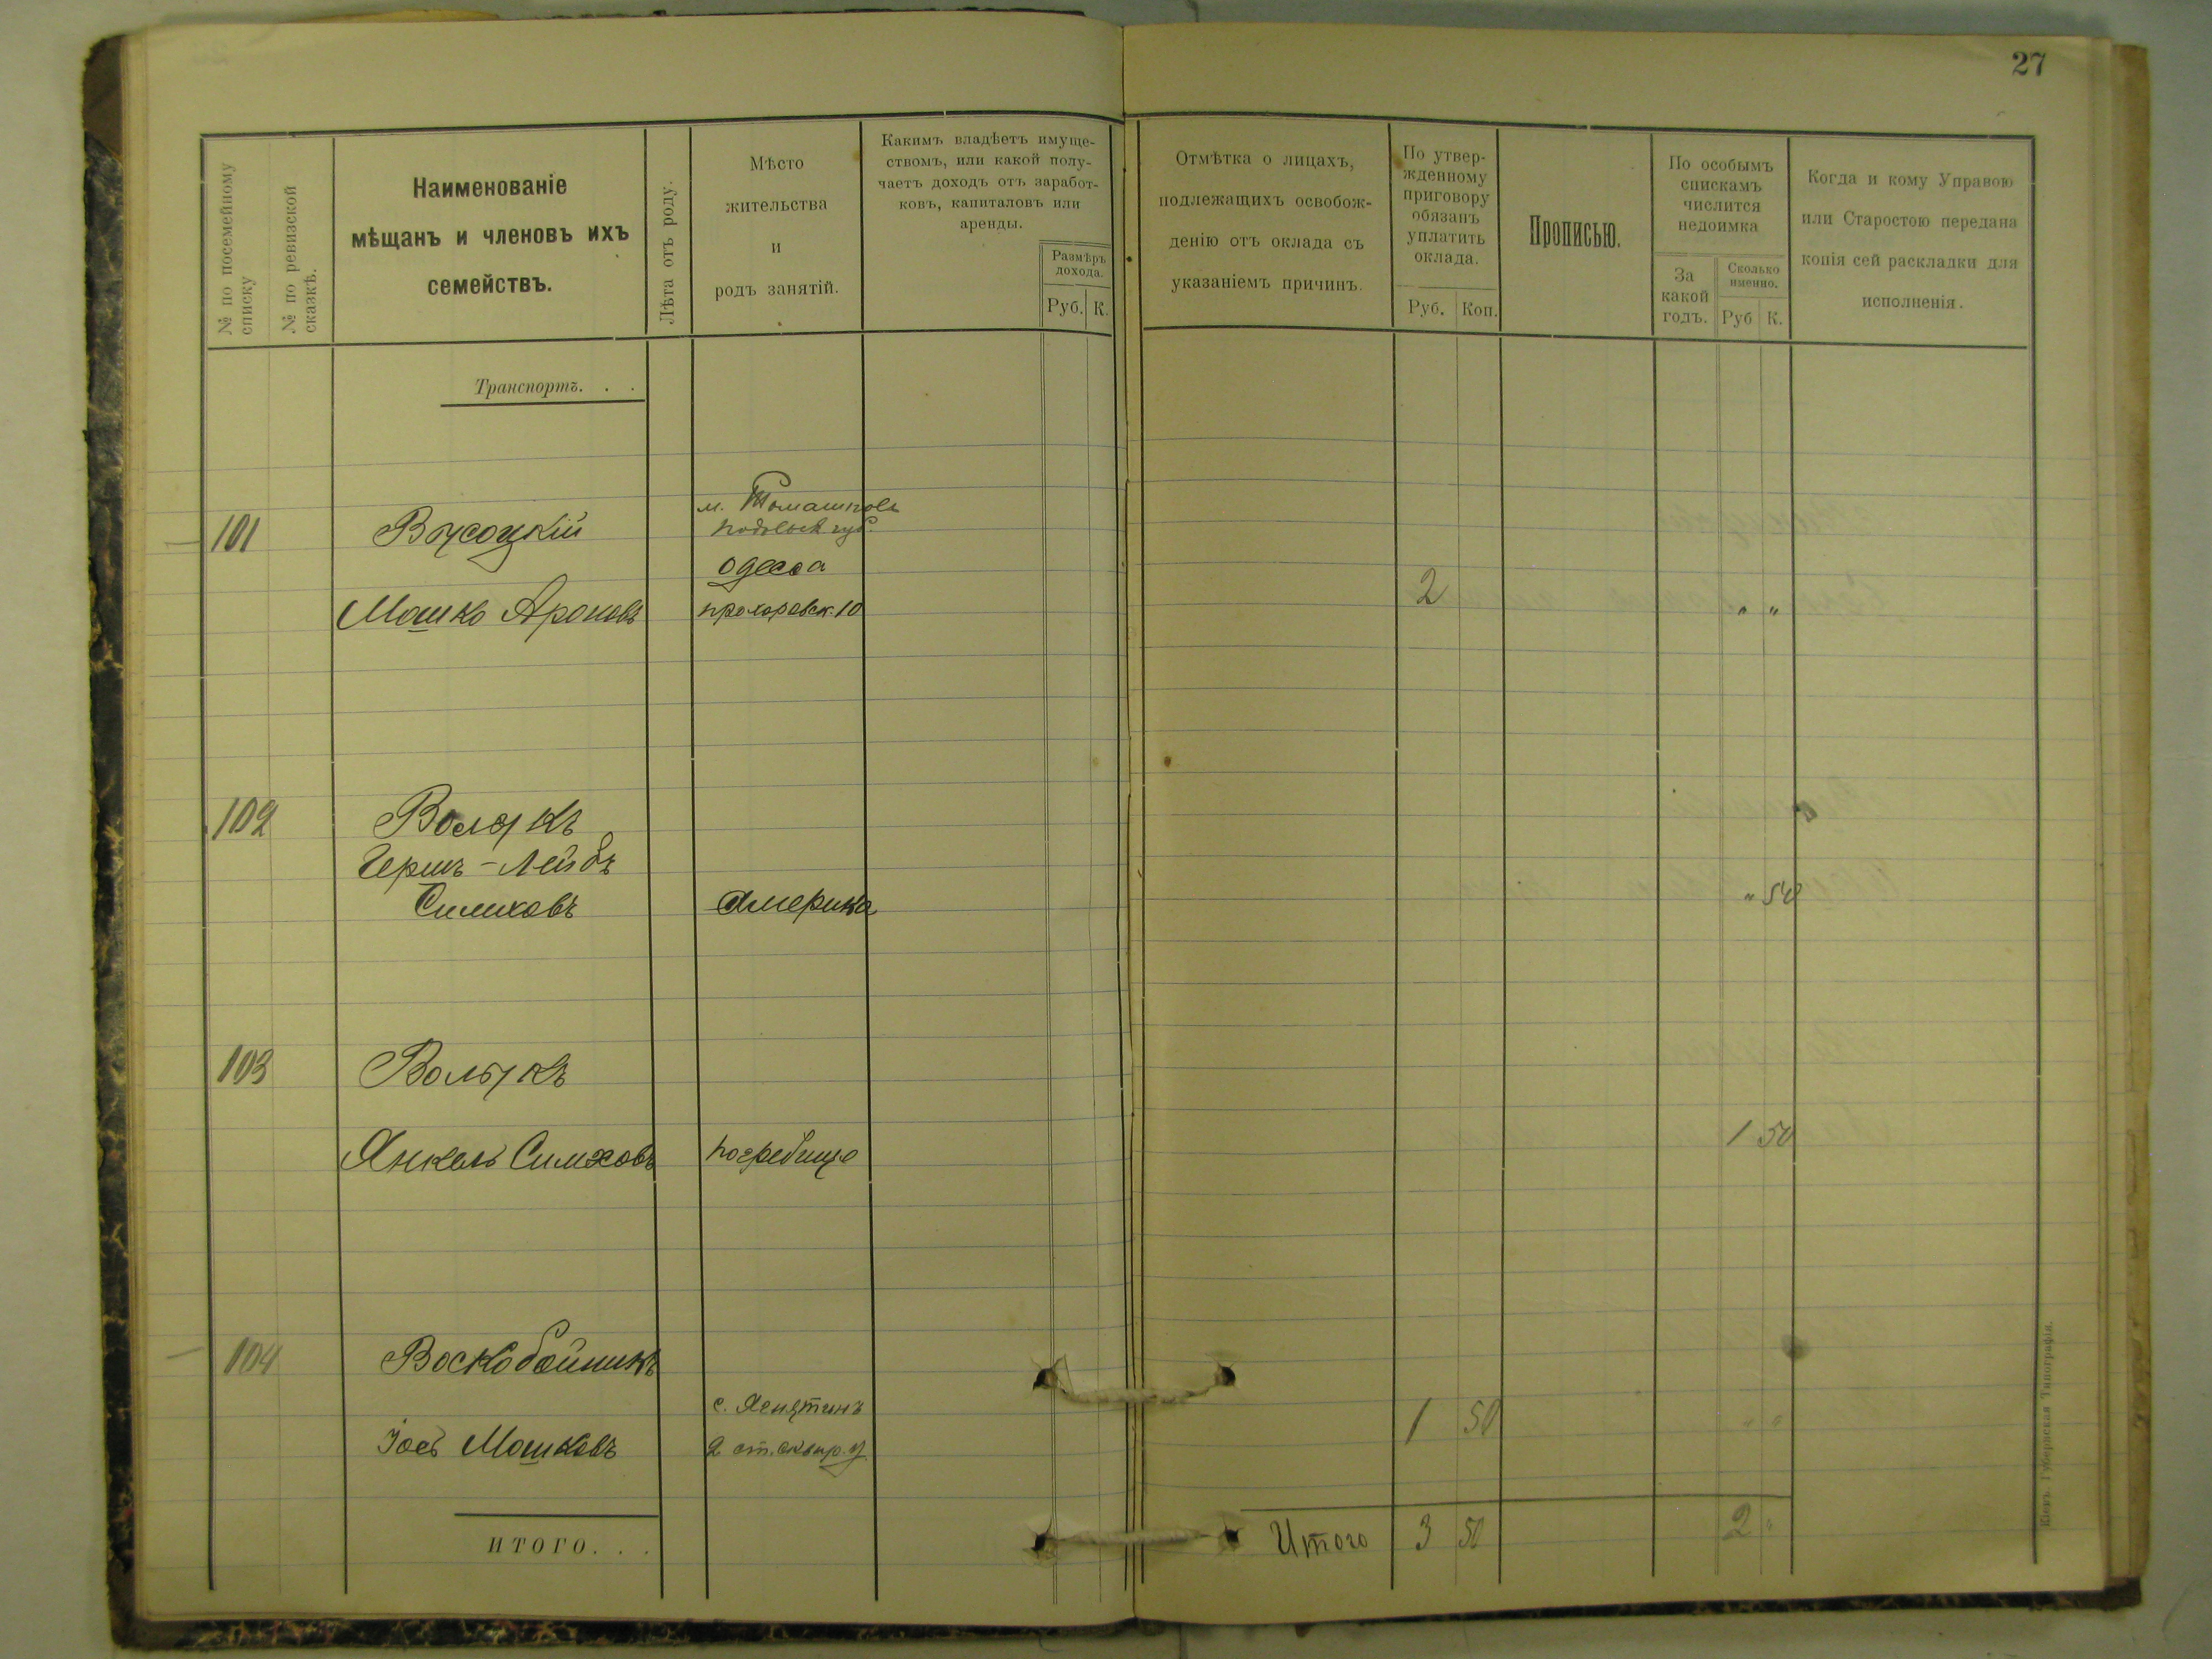 27
№ по посемейному списку
№ по ревизской сказкѣ.
Наименованіе
мѣщанъ и членовъ ихъ
семействъ.
Лѣта отъ роду.
Мѣсто
жительства
и
родъ занятій.
Какимъ владѣетъ имуще-
ствомъ, или какой полу-
чаетъ доходъ отъ заработ-
ковъ, капиталовъ или
аренды.
Размѣръ
дохода.
Руб. К.
Отмѣтка о лицахъ,
подлежащихъ освобож-
денію отъ оклада съ
указаніемъ причинъ.
По утвер-
жденному
приговору
обязанъ
уплатить
оклада.
Руб. Коп.
Прописью.
По особымъ
спискамъ
числится
недоимка
За
какой
годъ.
Сколько
именно.
Руб К.
Когда и кому Управою
или Старостою передана
копія сей раскладки для
исполненія.
Транспортъ. . .
м. Томашполь
101 Высоцкій подольск губ.
Одесса
Мошко Ароновъ прохоровск. 10 2 " "
102
Гершъ-Лейбъ
Симховъ Америка " 50
103
Янкель Симховъ погребище 1 50
104 Воскобойникъ
с.
Іосъ Мошковъ 2 ст. сквир. у 1 50 " "
ИТОГО. . .
Итого 3 50 2 "
Кіевъ. Губернская Типографія.